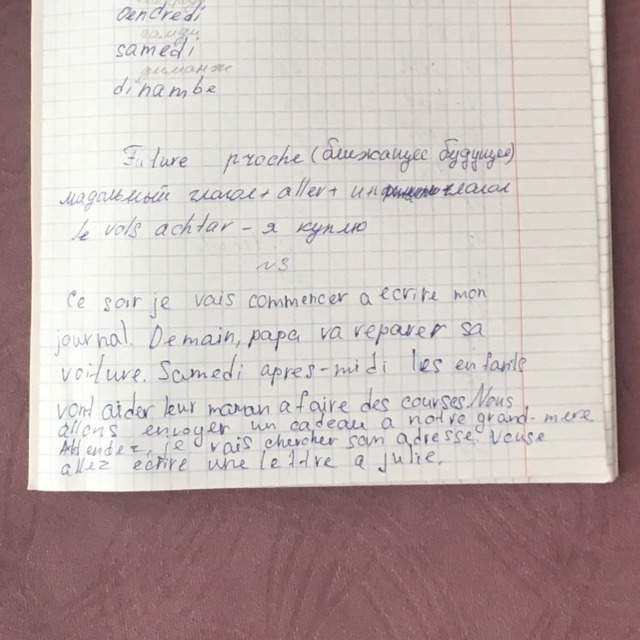 vencredi
самди
samedi
диманж
dihambe
Future proche (ближайщее будущее)
мадальный глагол + aller + инфинитив глагол
le vois achtar - я куплю
№3
Ce soir je vais commencer a ecrire mon
journal. Demain, papa va reparer sa
voiture. Samedi apres-midi les enfants
vont aider leur maman a faire des courses. Nous
allons envoyer un cadeau a notre grand-mere.
Attendez, je vais chercher son adresse. Vouse
allez ecrire une lettre a julie.